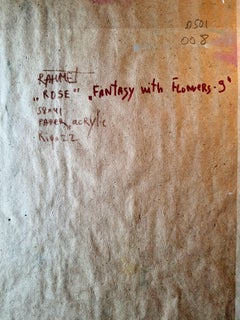 0501
008
RAHMET
"ROSE" "FANTASY with FLOWERS-9"
58x41
PAPER, acrylic